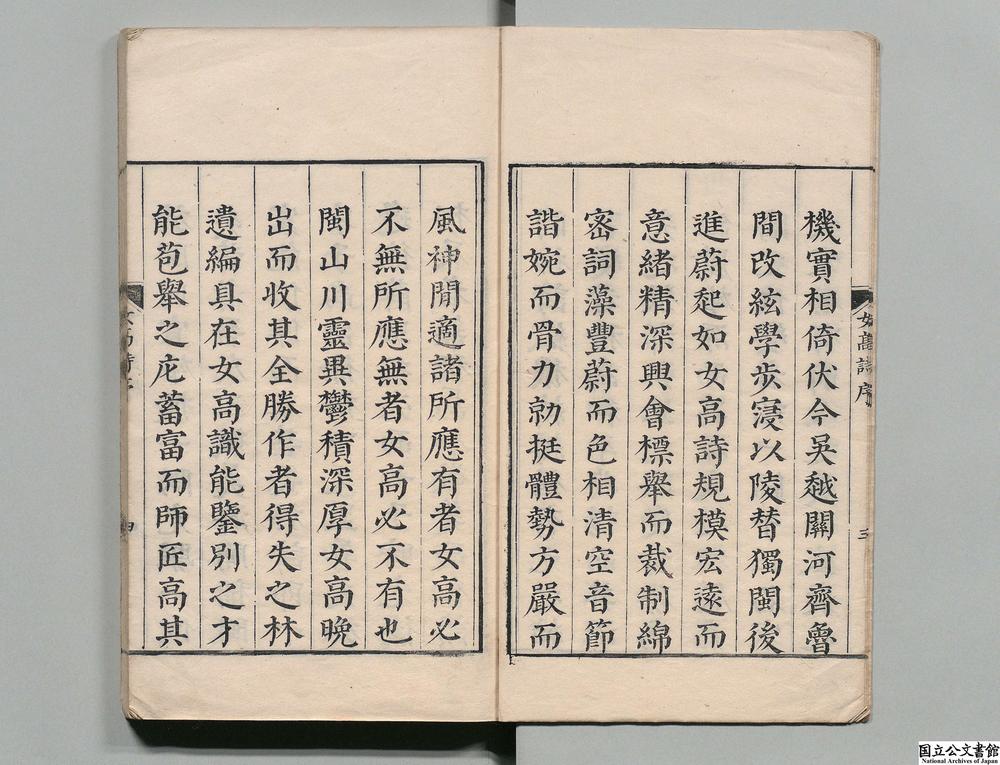 女高詩序
三
機實相倚伏今吳越關河齊魯
間改絃學步寖以陵替獨閩後
進蔚起如女高詩規模宏遠而
意緒精深興會標舉而裁制綿
密詞藻豐蔚而色相清空音節
諧婉而骨力勍挺體勢方嚴而
風神閒適諸所應有者女高必
不無所應無者女高必不有也
閩山川靈異鬱積深厚女高晚
出而收其全勝作者得失之林
遺編具在女高識能鑒別之才
能苞舉之庀蓄富而師匠高其
四
国立公文書館
National Archives of Japan